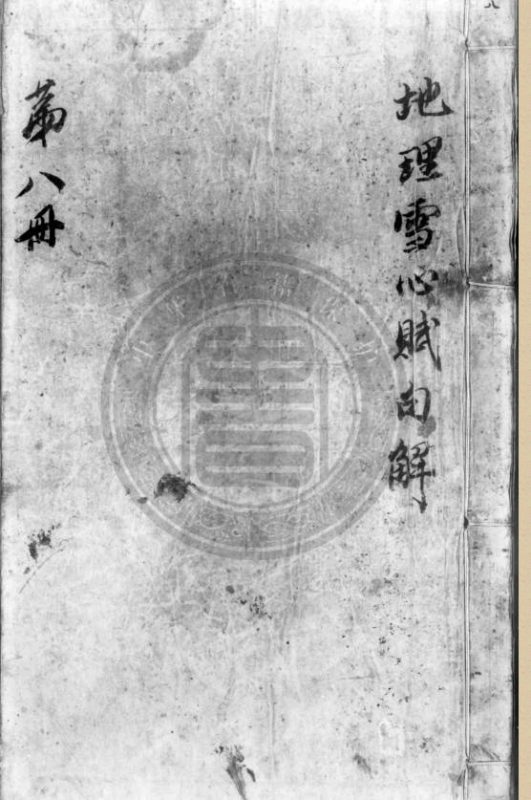 地理雪心賦句解
第八冊